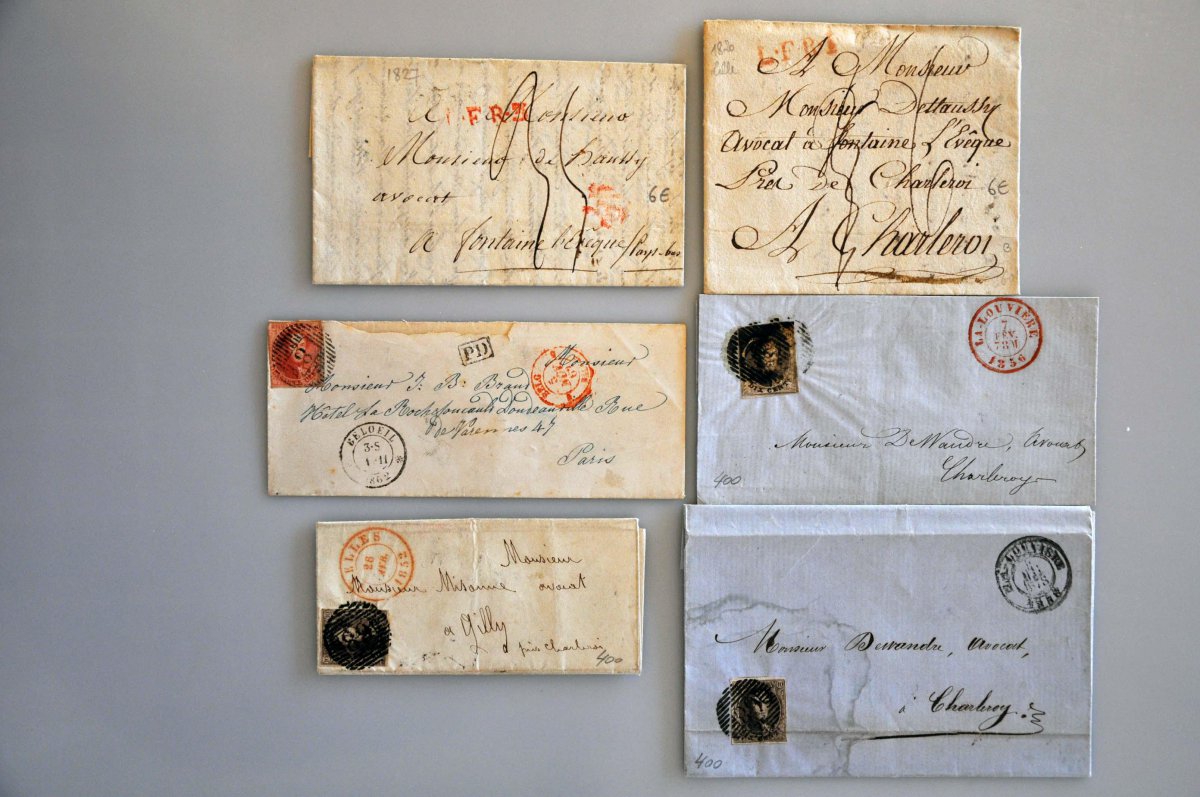 1827
FR
A Monsieur
Monsieur de haussy
avocat
6€
a fontaine l'Eveque / Pays-bas
1820
Lille
L.F.R.
A Monsieur
Monsieur Dehaussy
Avocat à fontaine L'Evêque
Près de Charleroi
6€
A Charleroi
PD
Monsieur
Monsieur J. B. Braud
Hôtel La Rochefoucauld Doudeauville Rue
de Varennes 47
Paris
BELOEIL
3-S
1862
LA-LOUVIERE
7
FEV.
1856
Monsieur DeWandre, Avocat
Charleroy
400
ELLES
28
Monsieur
Monsieur Misonne avocat
a Gilly
près Charleroi
400
LA LOUVIERE
Monsieur Dewandre, Avocat,
à Charleroy
400